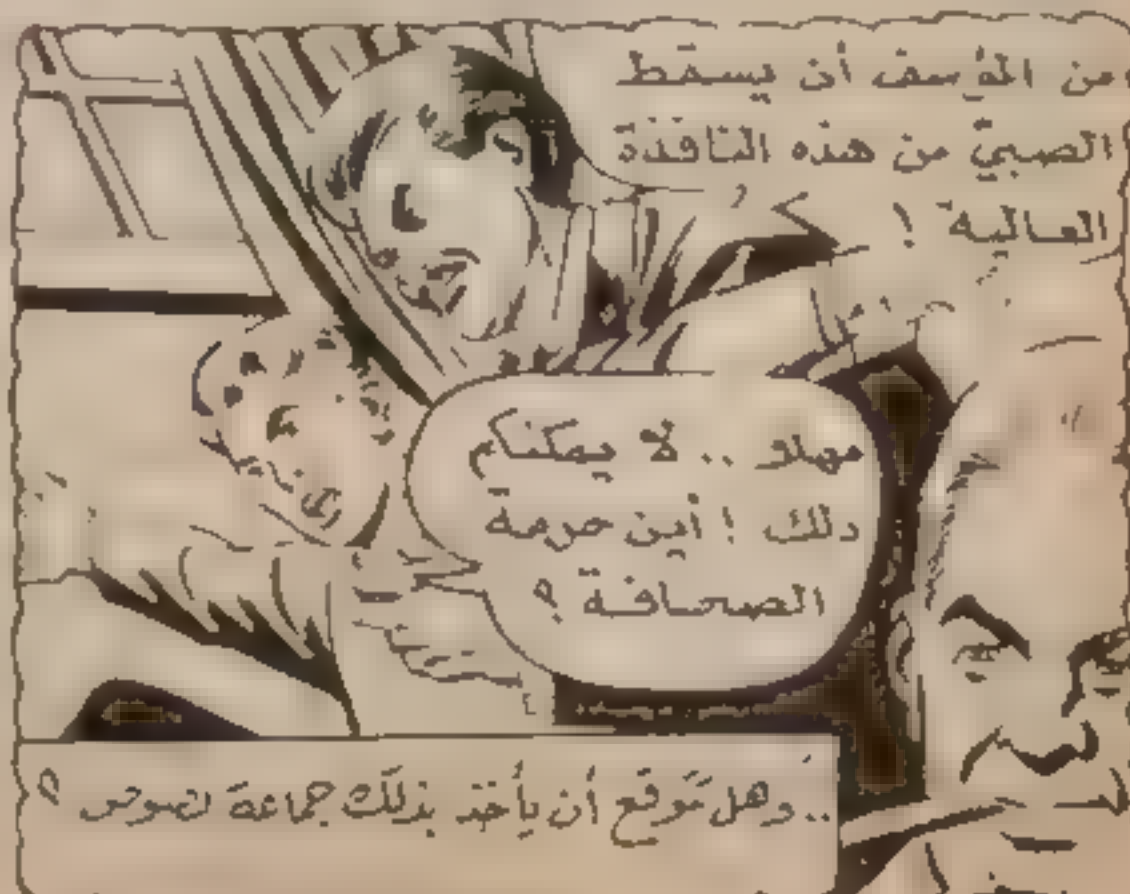 من المؤسف أن يسقط
الصبيّ من هذه النافذة
العالية !
مهلا .. لا يمكنكم
ذلك ! أين حرمة
الصحافة ؟
.. وهل تتوقع أن يأخذ بذلك جماعة لصوص ؟